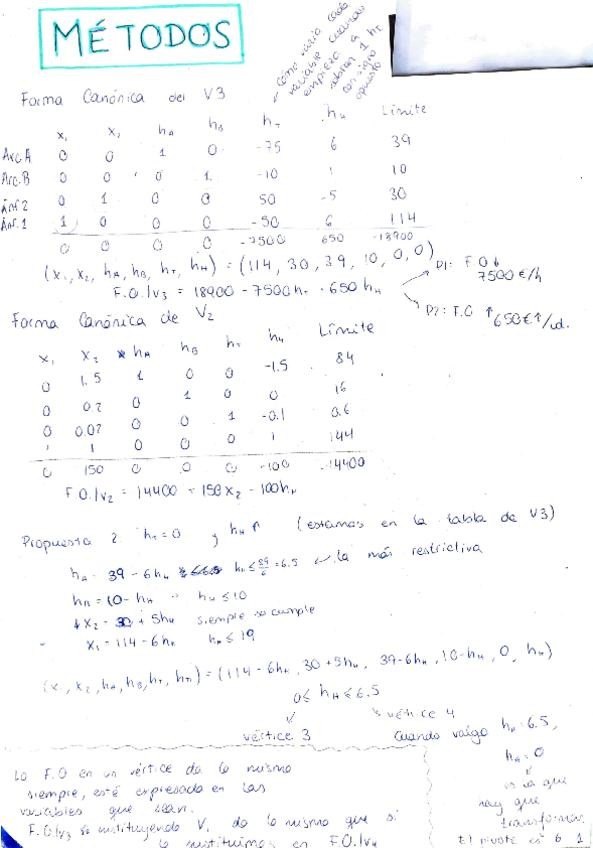 MÉTODOS
← cómo varía cada
variable cuando
empiezo a
sobrar 1 h
con signo
opuesto
Forma Canónica del V3
x₁ x₂ hA hB hT hM Límite
Arc.A 0 0 1 0 -75 6 39
Arc.B 0 0 0 1 -10 1 10
Ánf.2 0 1 0 0 50 -5 30
Ánf.1 1 0 0 0 -50 6 114
0 0 0 0 -7500 650 -18900
(x₁, x₂, hA, hB, hT, hM) = (114, 30, 39, 10, 0, 0)
F.O./V3 = 18900 - 7500hT + 650hM
P1: F.O ↓
7500€/h
P2: F.O ↑
650€↑/ud.
Forma Canónica de V2
x₁ x₂ hA hB hT hM Límite
0 1.5 1 0 0 -1.5 84
0 0.2 0 1 0 0 16
0 0.02 0 0 1 -0.1 0.6
1 1 0 0 0 1 144
0 150 0 0 0 -100 -14400
F.O./V2 = 14400 + 150x₂ - 100hM
Propuesta 2 hT = 0 y hM ↑ (estamos en la tabla de V3)
hA = 39 - 6hM hM ≤ 39/6 = 6.5 ← la más restrictiva
hB = 10 - hM → hM ≤ 10
x₂ = 30 + 5hM siempre se cumple
x₁ = 114 - 6hM hM ≤ 19
(x₁, x₂, hA, hB, hT, hM) = (114 - 6hM, 30 + 5hM, 39 - 6hM, 10 - hM, 0, hM)
0 ≤ hM ≤ 6.5
vértice 3
vértice 4
Cuando valga hM = 6.5,
hA = 0
es la que
hay que
transformar.
El pivote es 6 1
La F.O en un vértice da lo mismo
siempre, esté expresada en las
variables que sean.
F.O/V3 sustituyendo V. da lo mismo que si
lo sustituimos en F.O/V4